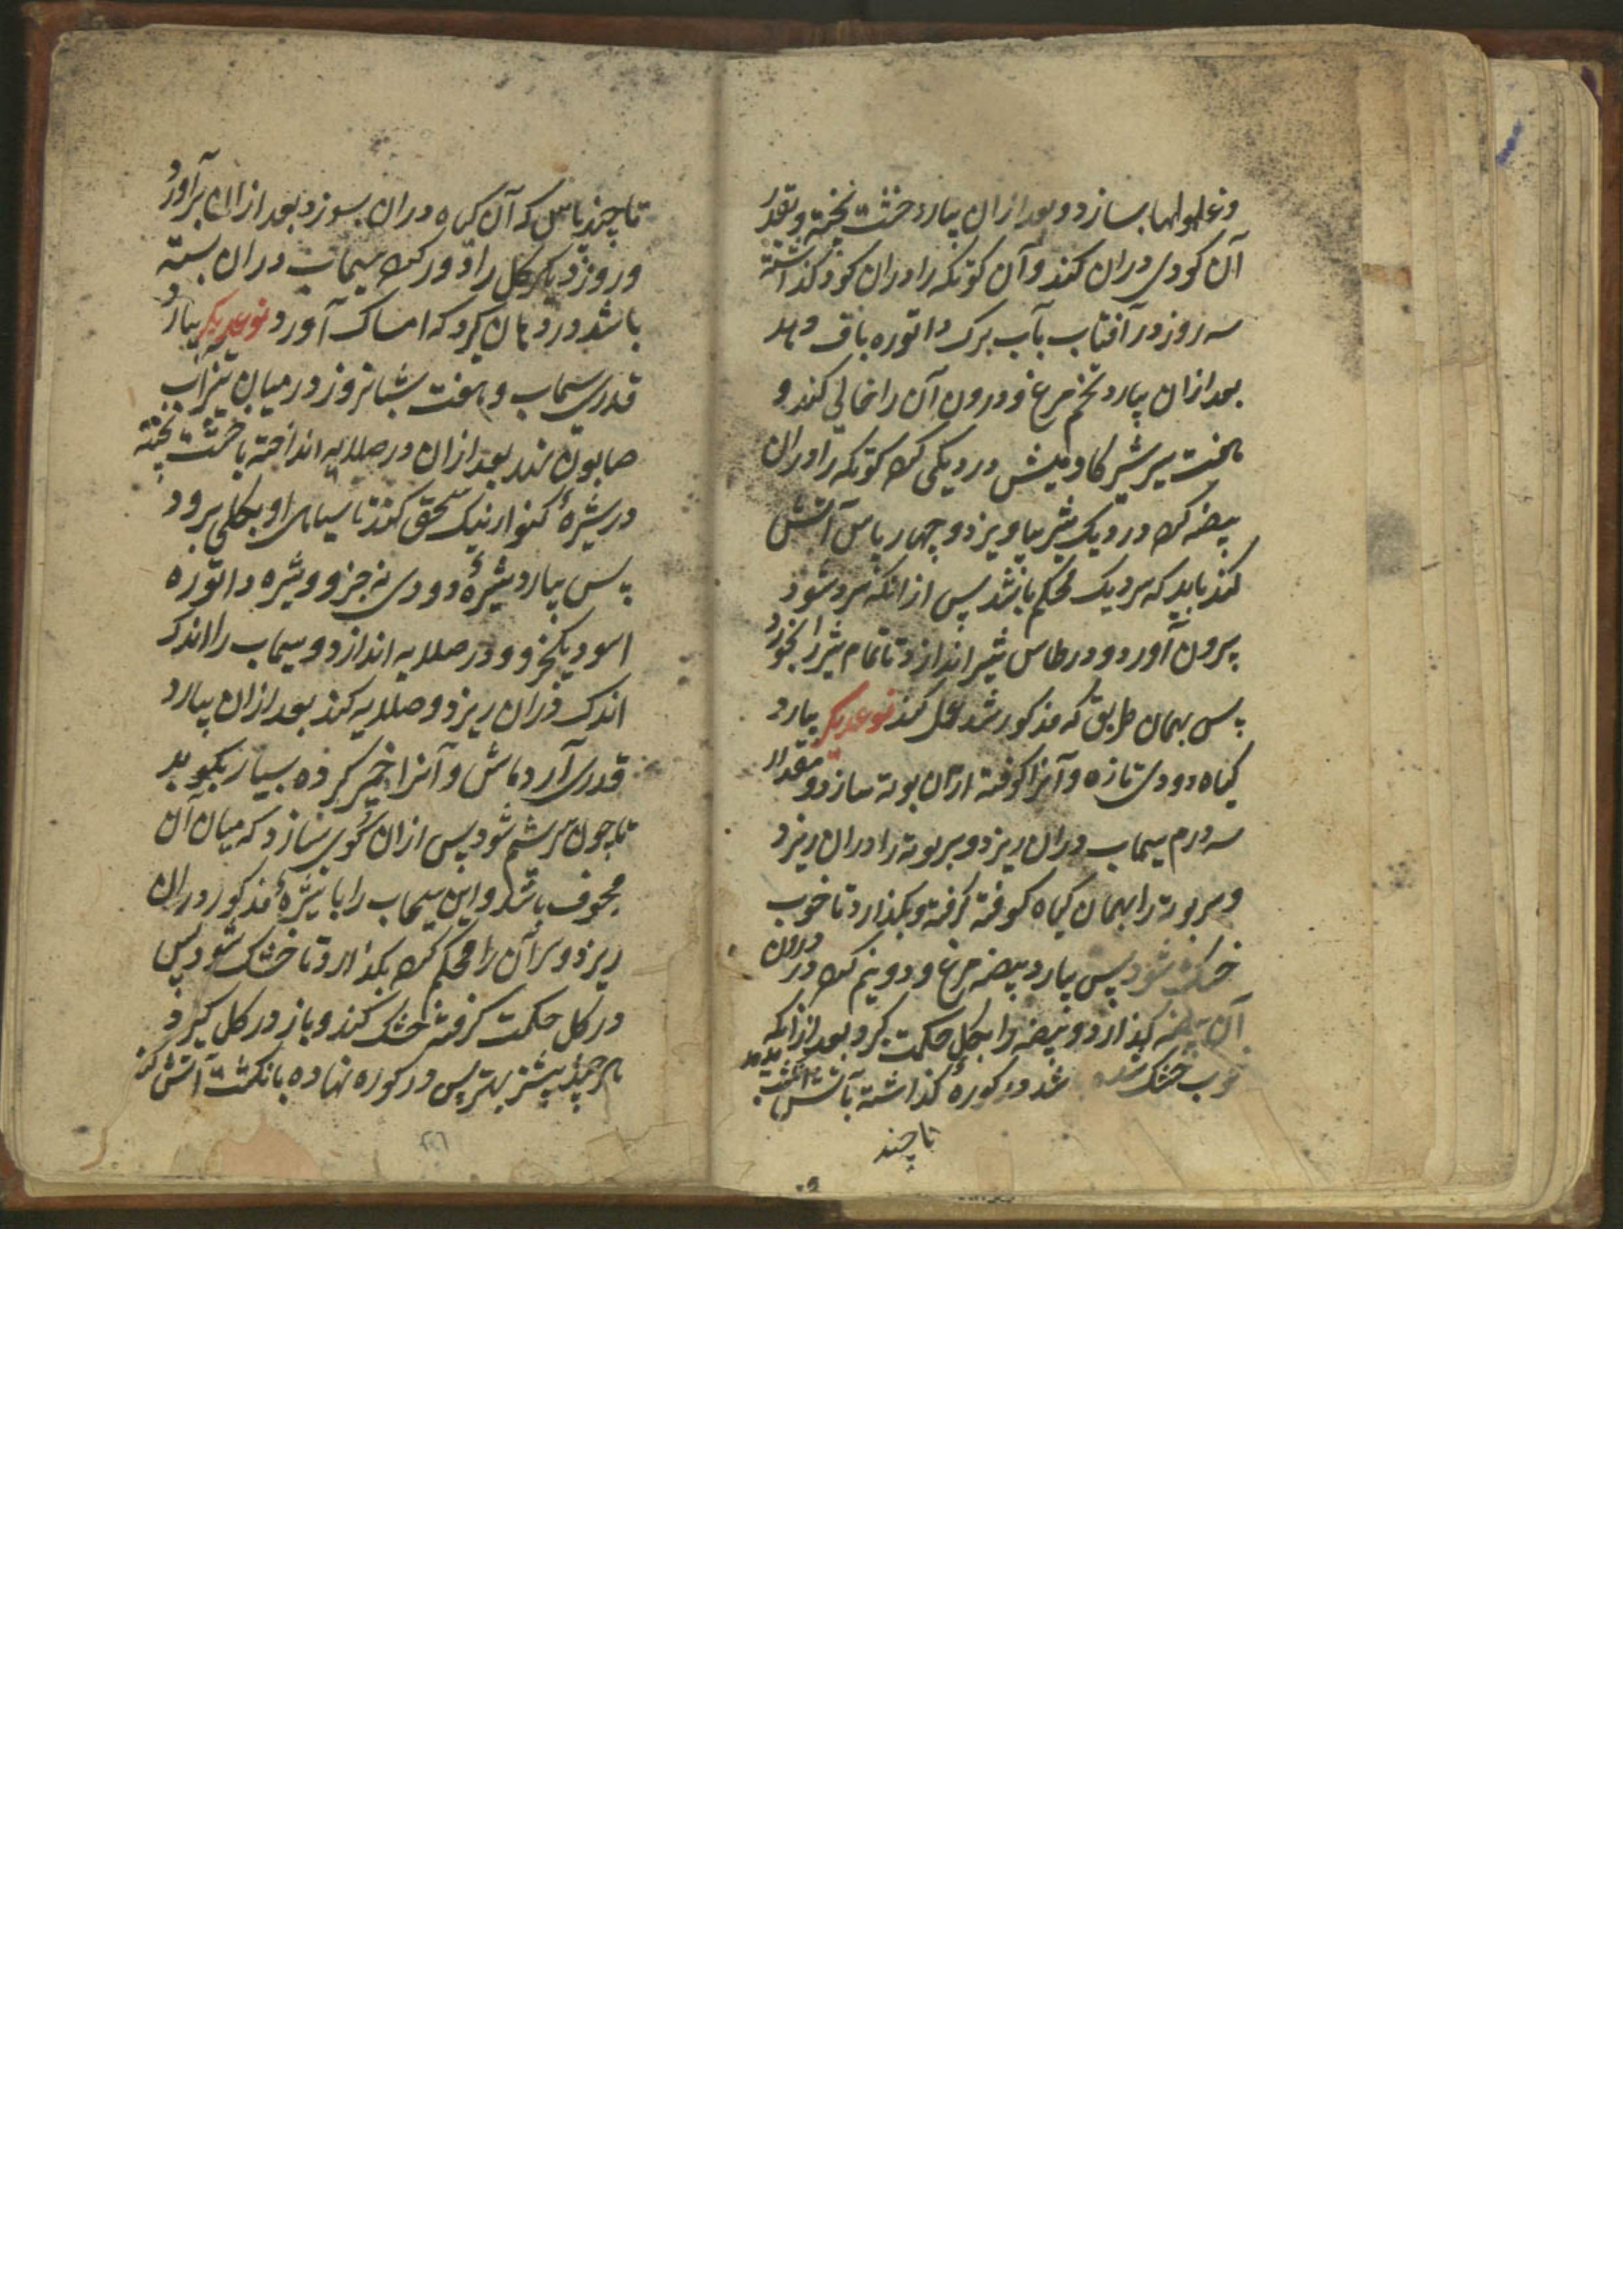 وغلولها بسازد و بعد ازان بیارد خشت پخته و بقدر
آن کودی دران کند و آن کوتکه را دران کود گذاشته
سه روز در آفتاب بآب برک داتوره باف دهد
بعد ازان بیارد تخم مرغ و درون آن را خالی کند و
هفت سیر شیر کاومیش در دیکی کرده کوتکه را دران
بیضه کرده در دیک شیر بیاویزد و چهار پاس آتش
کند باید که سر دیک محکم باشد پس ازانکه سرد شود
بیرون آورد و در طاس شیر اندازد تا تمام شیر را بخورد
پس بهمان طریق که مذکور شد عمل کند نوعدیکر بیارد
کیاه دودی تازه و آنرا کوفته ازان بوته سازد و مقدار
سه درم سیماب دران ریزد و سر بوته را دران ریزد
و سر بوته را بهمان کیاه کوفته گرفته و بکذارد تا خوب
خشک شود پس بیارد بیضه مرغ و دو نیم کرده در درون
آن بیضه بکذارد و بیضه را بکل حکمت کیرد بعد ازانکه
خوب خشک شده باشد در کوره گذاشته بآتش انکشت بدمد
تا چند
تا چند پاس که آن کیاه دران بسوزد بعد ازان برآورد
و روز دیکر کل را دور کرده سیماب دران بسته
باشد در دهان کیرد که امساک آورد نوعدیکر بیارد
قدری سیماب و هفت شبانروز در میان تیزاب
صابون نهد بعد ازان در صلایه انداخته با خشت پخته
در شیرهٔ کنوار نیک سحق کند تا سیاهی او بکلی برود
پس بیارد شیرهٔ دودی نه جزو و شیره داتوره
اسود یکجزو و در صلایه اندازد و سیماب را اندک
اندک دران ریزد و صلایه کند بعد ازان بیارد
قدری آرد ماش و آنرا خمیر کرده بسیار بکوبد
تا چون سریشم شود پس ازان کوی بسازد که میان آن
مجوف باشد و این سیماب را با شیرهٔ مذکور دران
ریزد و سر آن را محکم کرده بکذارد تا خشک شود پس
در کل حکمت گرفته خشک کند و باز در کل کیرد
هر چند بیشتر بهتر پس در کوره نهاده بانکشت آتش کند